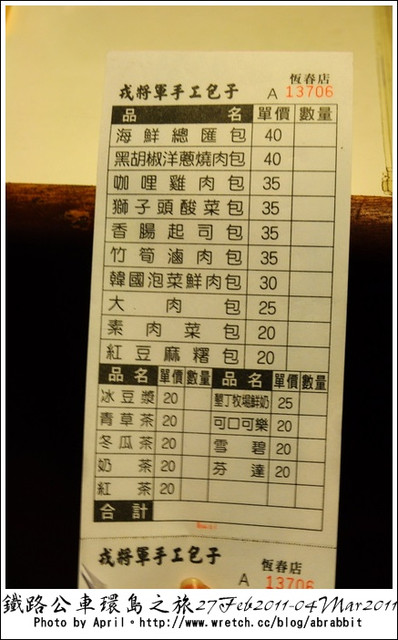 恆春店
戎將軍手工包子 A 13706
品名 單價 數量
海鮮總匯包 40
黑胡椒洋蔥燒肉包 40
咖哩雞肉包 35
獅子頭酸菜包 35
香腸起司包 35
竹筍滷肉包 35
韓國泡菜鮮肉包 30
大肉包 25
素肉菜包 20
紅豆麻糬包 20
品名 單價 數量 品名 單價 數量
冰豆漿 20 墾丁牧場鮮奶 25
青草茶 20 可口可樂 20
冬瓜茶 20 雪碧 20
奶茶 20 芬達 20
紅茶 20
合計
戎將軍手工包子 恆春店
A 13706
鐵路公車環島之旅27Feb2011-04Mar2011
Photo by April。http://www.wretch.cc/blog/abrabbit